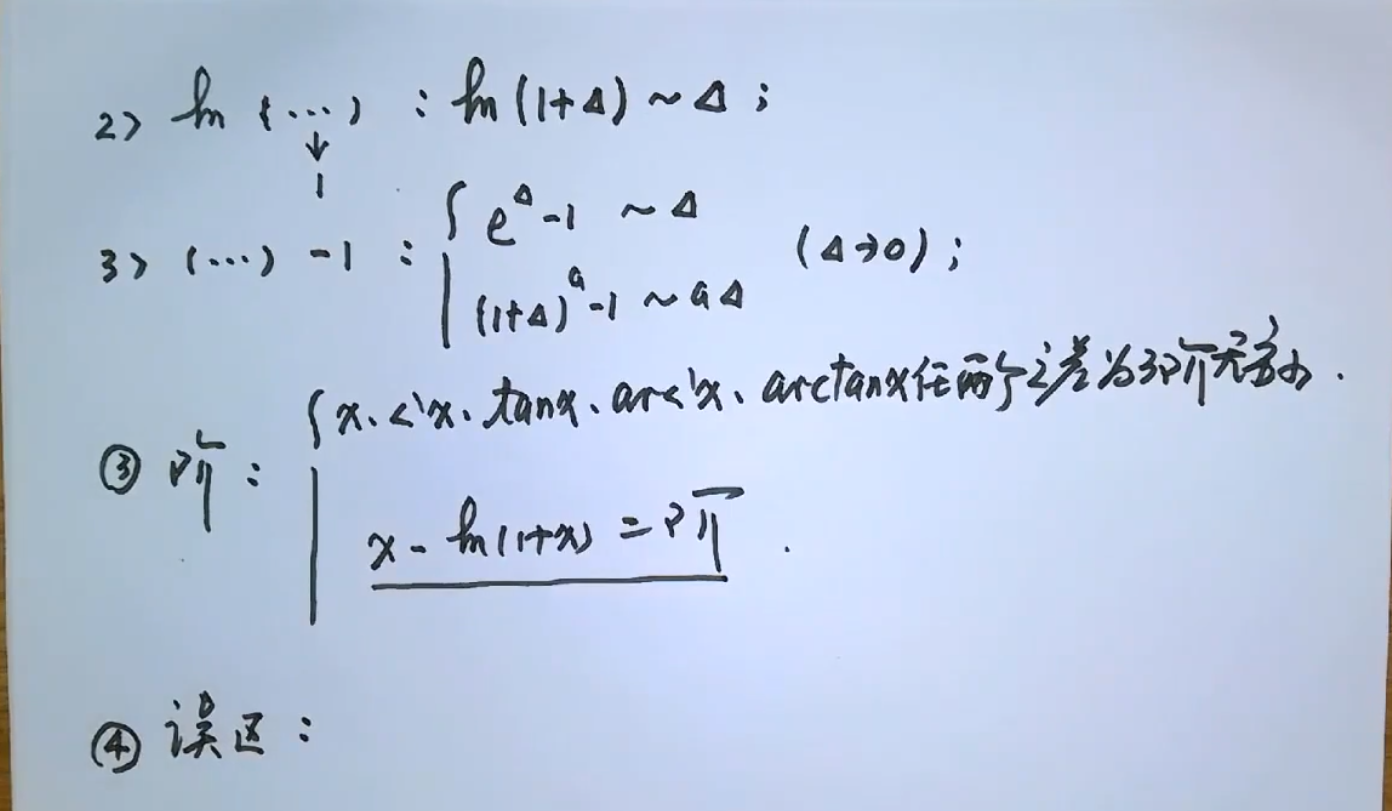 2) ln (…) : ln(1+Δ) ~ Δ ;
↓
1
3) (…) -1 : { e^Δ -1 ~ Δ
(Δ→0) ;
(1+Δ)^a -1 ~ aΔ
③ 阶 : { x、<'x、tanx、arc'x、arctanx任两个之差为3阶无穷小 .
x - ln(1+x) = 2阶 .
④ 误区 :